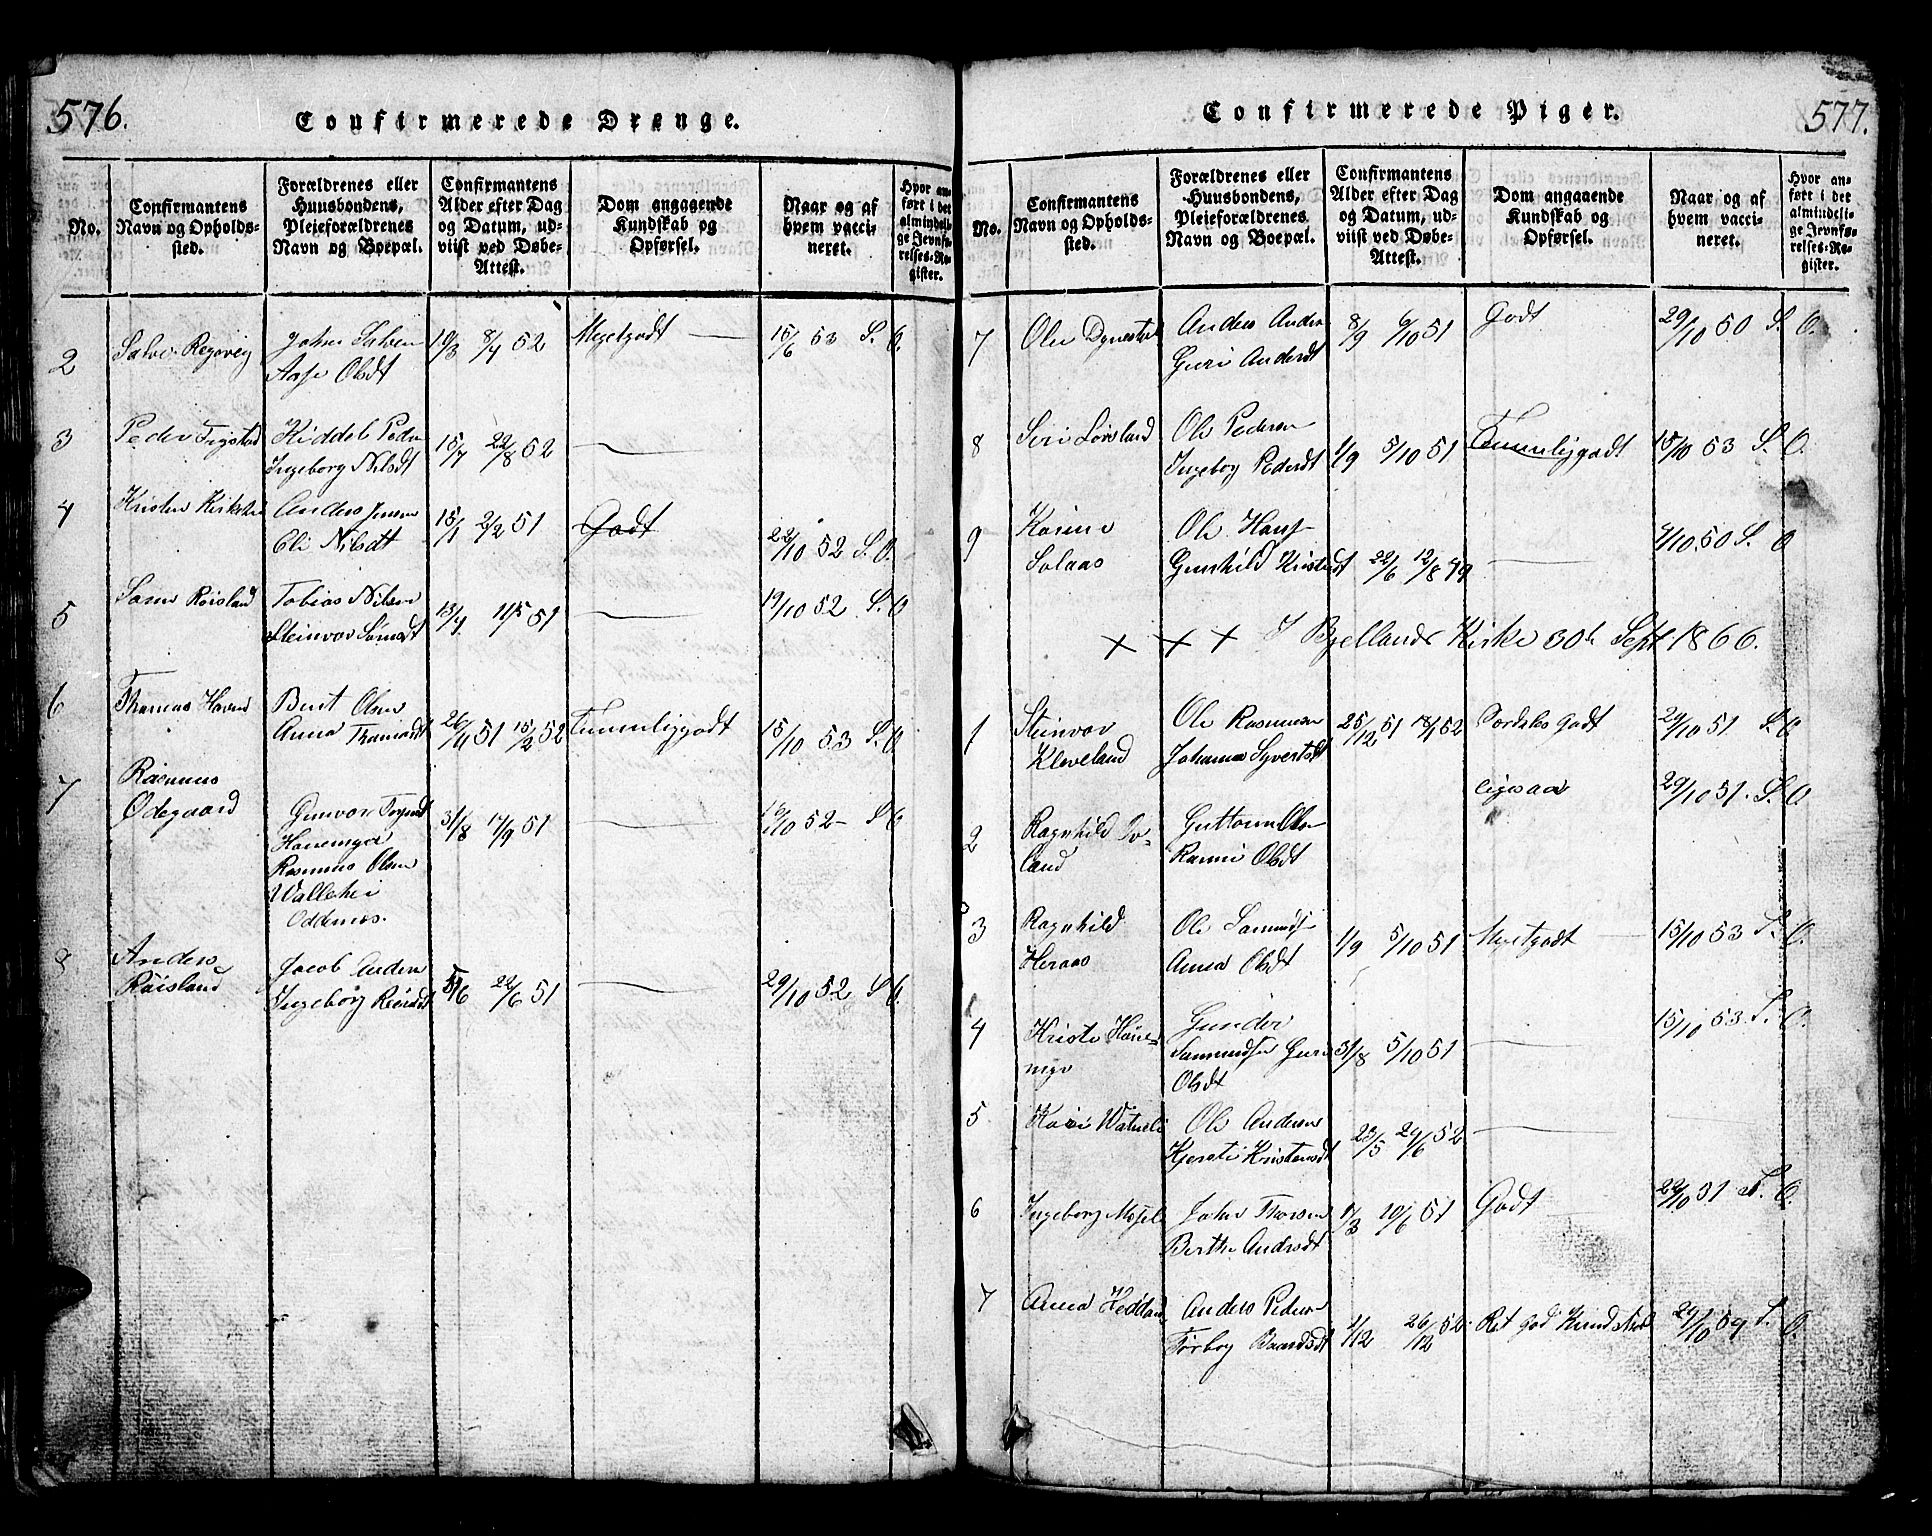 576.
Confirmerede Drenge.
No.
Confirmantens
Navn og Opholds-
sted.
Forældrenes eller
Huusbondens,
Plejeforældrenes
Navn og Boepæl.
Confirmantens
Alder efter Dag
og Datum, ud-
viist ved Døbe-
Attest.
Dom angaaende
Kundskab og
Opførsel.
Naar og af
hvem vacci-
neret.
Hvor an-
ført i det
almindeli-
ge Jevnfø-
relses-Re-
gister.
2 Salve
John Salvesen
Aase Olsdt
19/3 8/4 52
Megetgodt
15/6 53 S. O.
3 Peder
Kiddel Peder
Ingeborg Nilsdt
15/7 22/8 52
4 Kristen
Anders Jensen
Eli Nilsdt
15/1 2/2 51
Godt
22/10 52 S. O.
5 Røisland
Tobias Nilsen
Steinvor
13/4 11/5 51
19/10 52 S. O
6 Thomas
Berit Olsen
Anna
26/11 51 15/2 52
Temmeliggodt
15/10 53 S. O
7 Rasmus
Ødegaard
Gunvor
31/8 17/9 51
Rasmus Olsen
Oddernes.
/10 52 S O
8 Anders
Røisland
Jacob Anders
Ingeborg
5/6 22/6 51
29/10 52 S O.
577.
Confirmerede Piger.
No.
Confirmantens
Navn og Opholds-
sted.
Forældrenes eller
Huusbondens,
Plejeforældrenes
Navn og Boepæl.
Confirmantens
Alder efter Dag
og Datum, ud-
viist ved Døbe-
Attest.
Dom angaaende
Kundskab og
Opførsel.
Naar og af
hvem vacci-
neret.
Hvor an-
ført i det
almindeli-
ge Jevnfø-
relses-Re-
gister.
7
Anders Anders
Guri Andersdt
8/9 6/10 51
Godt
29/10 50 S. O.
8 Siri
Ole Pedersen
Ingeborg Pedersdt
1/9 5/10 51
Temmeliggodt
15/10 53 S. O.
9 Karine
Solaas
Ole Hans
Gunhild
22/6 12/8 49
/10 50 S. O
× × × I Bjellands Kirke 30te Sept. 1866.
1 Steinvor
Kleveland
Ole Rasmusen
Johanna Syvertsdt
25/12 51 18/1 52
Særdeles godt
29/10 51 S. O
2 Ragnhild
land
Guttorm Olsen
Ranni Olsdt
ligesaa
29/10 51. S. O
3 Ragnhild
Heraas
Ole
Anna Olsdt
1/9 5/10 51
Megetgodt
15/10 53 S. O.
4 Kristi
Gunder
Guri
Olsdt
31/8 5/10 51
15/10 53 S. O.
5 Kari
Ole Andersen
Kjersti Kristensdt
23/5 29/6 52
6 Ingeborg
John Thorsen
Berthe
17/3 10/6 51
Godt
22/10 51 S. O.
7 Anna Heddan
Anders Pedersen
Torbor Baardsdt
1/12 26/12 52
Ret god Kundskab
29/10 59 S. O.